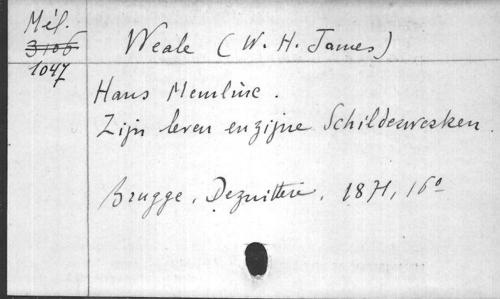 Mél.
3106
1047
Weale (W. H. James)
Hans Memlinc.
Zijn leven en zijne Schilderwerken.
Brugge, Dezuttere, 1871, 16º